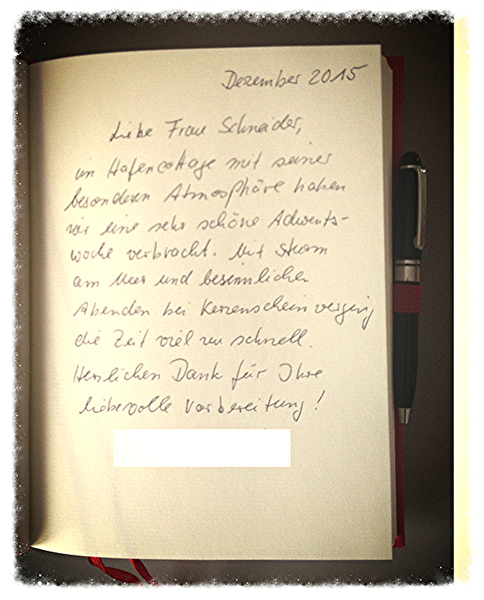 Dezember 2015
Liebe Frau Schneider,
im Hafencottage mit seiner
besonderen Atmosphäre haben
wir eine sehr schöne Advents-
woche verbracht. Mit Sturm
am Meer und besinnlichen
Abenden bei Kerzenschein verging
die Zeit viel zu schnell.
Herzlichen Dank für Ihre
liebevolle Vorbereitung!